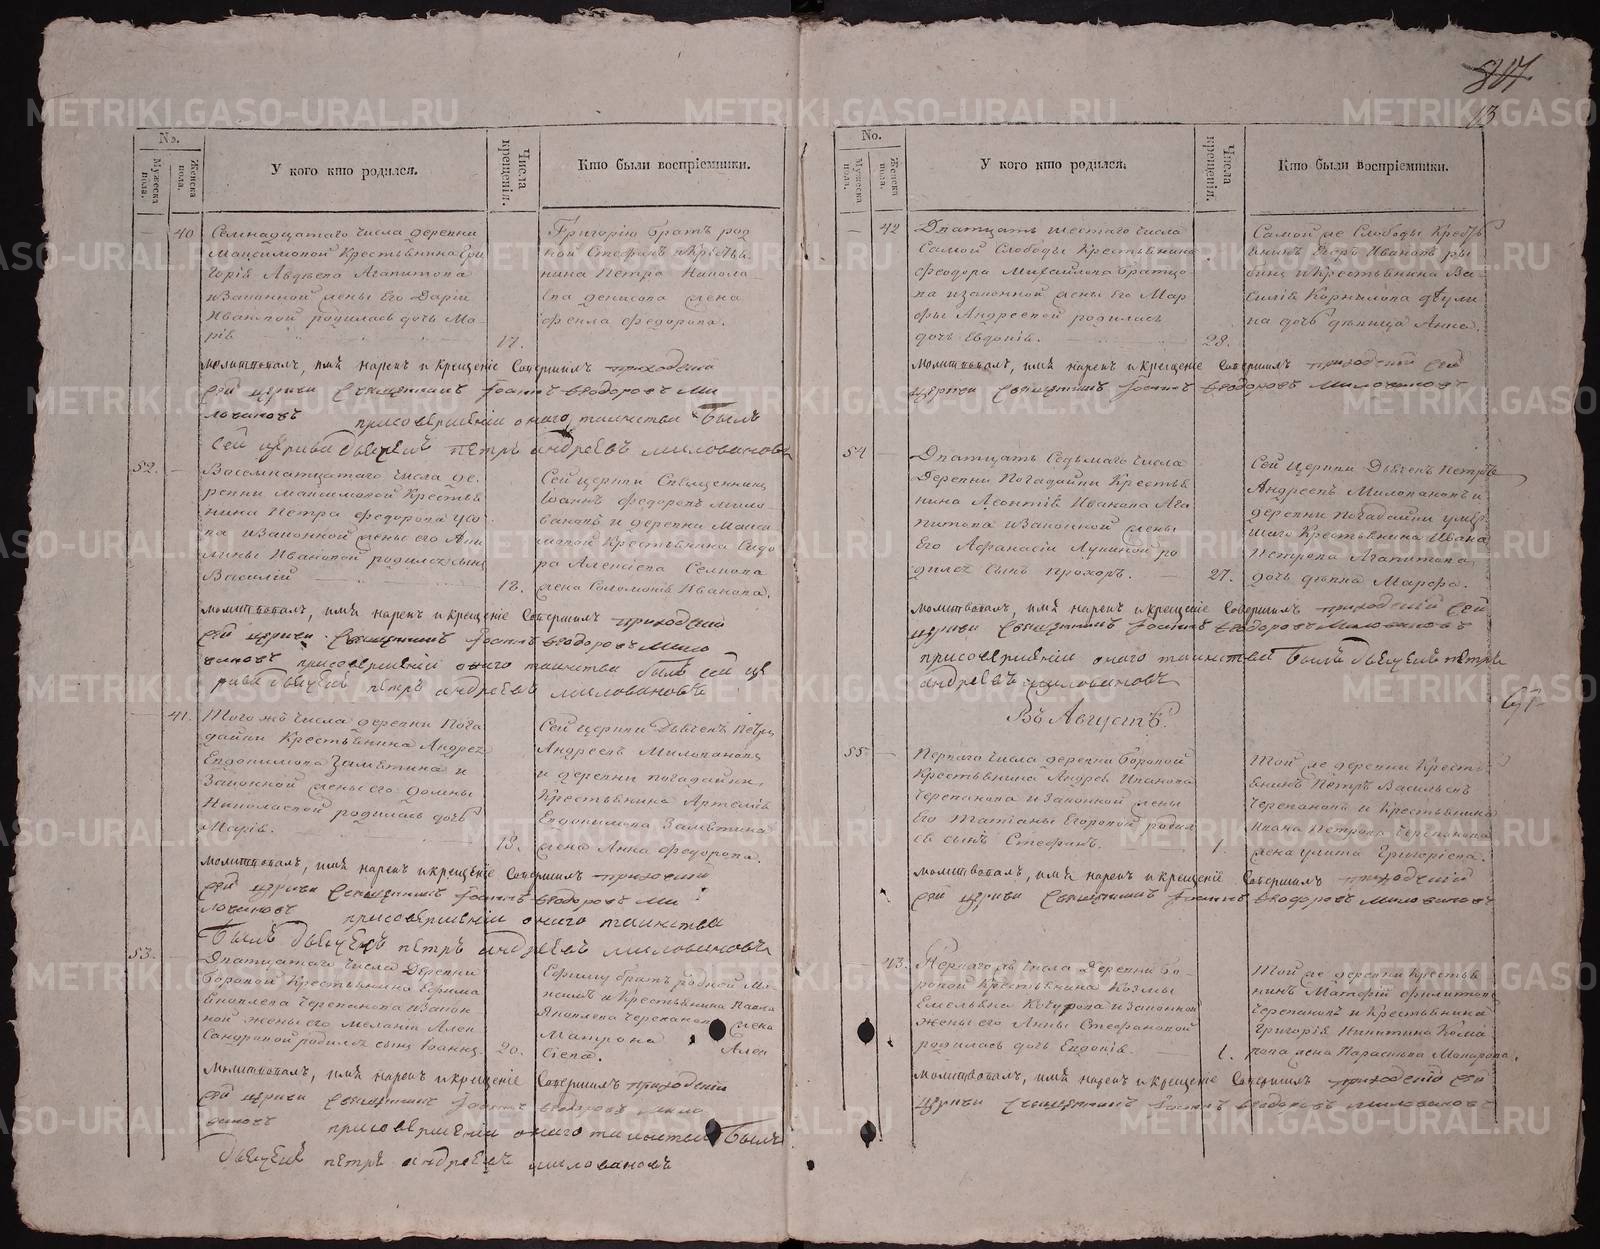 807
13
No.
Мужеска пола.
Женска пола.
У кого кто родился.
Числа крещенія.
Кто были воспріемники.
40
Семнадцатаго числа деревни
Максимовой Крестьянина Гри
горія Авдѣева Агапитова
и Законной жены его Даріи
Ивановой родилась дочь Ма-
рія
17.
Григорію братъ род
ной Стефанъ и Крестья-
нина Петра Никола-
ева Денисова жена
Фекла Федорова.
молитвовалъ, имя нарекъ и крещеніе Совершилъ приходскій
сей церкви Священникъ Іоаннъ Ѳеодоровъ Ми
ловановъ при совершеніи онаго таинства былъ
сей церкви дьячекъ Петръ Андреевъ Миловановъ
52.
Восемнатцатаго числа де-
ревни Максимовой Крестья
нина Петра Федорова
ва и Законной жены его Аки
лины Ивановой родился сынъ
Василій
18.
Сей церкви Священникъ
Іоаннъ Федоровъ Мило-
вановъ и деревни Макси
мовой Крестьянина Сидо
ра Алексѣева Семнова
жена Соломонія Иванова.
молитвовалъ, имя нарекъ и крещеніе Совершилъ приходскій
сей церкви Священникъ Іоаннъ Ѳеодоровъ Мило
вановъ при совершеніи онаго таинства былъ сей це
ркви дьячекъ Петръ Андреевъ Миловановъ
41.
Того жъ числа деревни Пога
дайки Крестьянина Андрея
Евдокимова Замятина и
Законной жены его Домны
Николаевой родилась дочь
Марія.
19.
Сей церкви Дьячекъ Петръ
Андреевъ Миловановъ
и деревни Погадайки
Крестьянина Артемія
Евдокимова Замятина
жена Анна Федорова.
молитвовалъ, имя нарекъ и крещеніе Совершилъ приходскій
сей церкви Священникъ Іоаннъ Ѳеодоровъ Ми
ловановъ при совершеніи онаго таинства
былъ дьячекъ Петръ Андреевъ Миловановъ
53.
Дватцатаго числа Деревни
Боровой Крестьянина Ефима
Яковлева Черепанова и Закон
ной жены его Меланіи Алек
сандровой родился сынъ Іоаннъ.
20.
Ефиму братъ родной Ма-
ксимъ и Крестьянина Павла
Яковлева Черепанова жена
Матрона Алек
сіева.
молитвовалъ, имя нарекъ и крещеніе Совершилъ приходскій
сей церкви Священникъ Іоаннъ Ѳеодоровъ Мило
вановъ при совершеніи онаго таинства былъ
дьячекъ Петръ Андреевъ Миловановъ
No.
Мужеска пола.
Женска пола.
У кого кто родился.
Числа крещенія.
Кто были воспріемники.
42
Дватцать шестаго числа
Самой Слободы Крестьянина
Феодора Михайлова Братцо-
ва и законной жены его Мар
фы Андреевой родилась
дочь Евдокія.
28.
Самой же Слободы Крестья
нинъ Егоръ Ивановъ Ры
бинъ и Крестьянина Ва-
силія Корнилова
на дочь дѣвица Анна.
молитвовалъ, имя нарекъ и крещеніе Совершилъ приходскій сей
церкви Священникъ Іоаннъ Ѳеодоровъ Миловановъ
54
Дватцать Седьмаго числа
Деревни Погадайки Крестья
нина Леонтія Иванова Ага
питова и Законной жены
Его Афанасіи Лукиной ро
дился Сынъ Прохоръ.
27.
Сей церкви Дьячекъ Петръ
Андреевъ Миловановъ и
деревни Погадайки умер
шаго Крестьянина Ивана
Петрова Агапитова
дочь дѣвка Марфа.
молитвовалъ, имя нарекъ и крещеніе Совершилъ приходскій сей
церкви Священникъ Іоаннъ Ѳеодоровъ Миловановъ
при совершеніи онаго таинства былъ дьячекъ Петръ
Андреевъ Миловановъ
Въ Августѣ.
55
Перваго числа деревни Боровой
Крестьянина Андрея Иванова
Черепанова и Законной жены
Его Татіаны Егоровой родил
ся сынъ Стефанъ.
1.
Той же деревни Кресть
янинъ Петръ Васильевъ
Черепановъ и Крестьянина
Ивана Петрова Черепанова
жена Улита Григоріева.
молитвовалъ, имя нарекъ и крещеніе Совершилъ приходскій
сей церкви Священникъ Іоаннъ Ѳеодоровъ Миловановъ
43.
Перваго жъ числа Деревни Бо-
ровой Крестьянина Козмы
Емельяна и Законной
жены его Анны Стефановой
родилась дочь Евдокія.
1.
Той же деревни Крестья
нинъ Матфій Филиповъ
Черепановъ и Крестьянина
Григорія Никитина
жена Парасковья Макарова.
молитвовалъ, имя нарекъ и крещеніе Совершилъ приходскій сей
церкви Священникъ Іоаннъ Ѳеодоровъ Миловановъ
METRIKI.GASO-URAL.RU